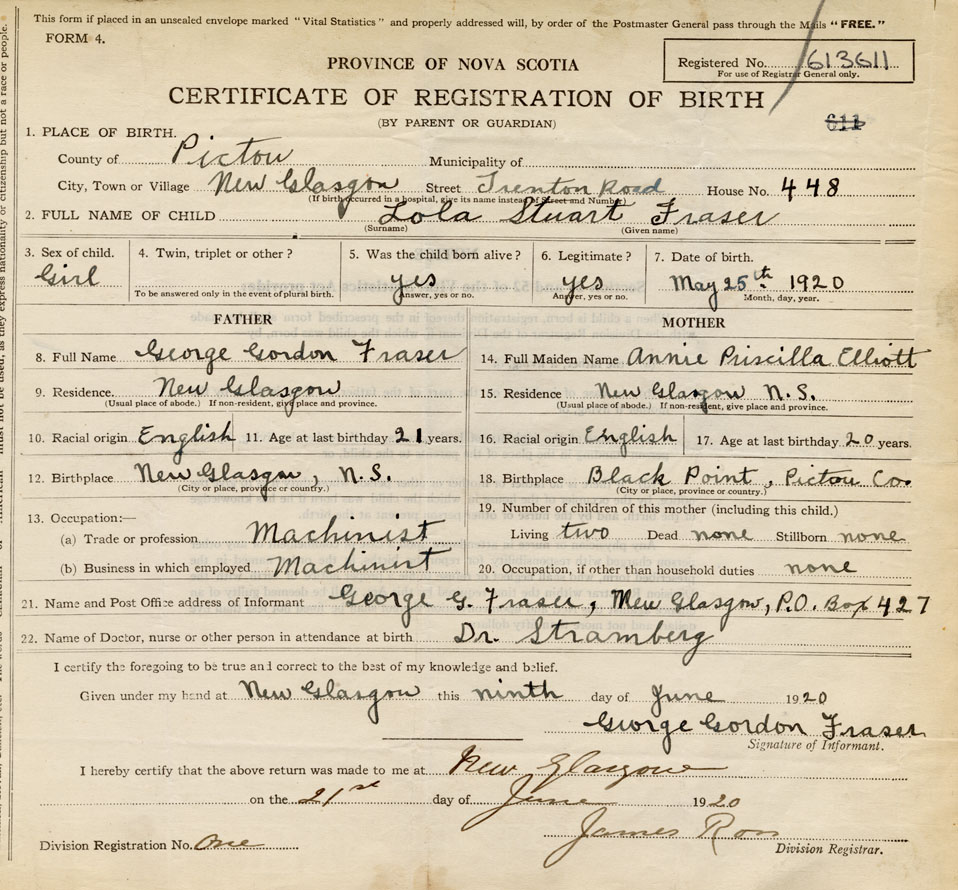 This form if placed in an unsealed envelope marked "Vital Statistics" and properly addressed will, by order of the Postmaster General pass through the Mails "FREE."
FORM 4.
Registered No. 613611
For use of Registrar General only.
PROVINCE OF NOVA SCOTIA
CERTIFICATE OF REGISTRATION OF BIRTH
(BY PARENT OR GUARDIAN)
611
1. PLACE OF BIRTH.
County of Pictou Municipality of
City, Town or Village New Glasgow Street Trenton Road House No. 448
(If birth occurred in a hospital, give its name instead of Street and Number)
2. FULL NAME OF CHILD Lola Stuart Fraser
(Surname) (Given name)
3. Sex of child. 4. Twin, triplet or other? 5. Was the child born alive? 6. Legitimate? 7. Date of birth.
Girl yes yes May 25th 1920
To be answered only in the event of plural birth. Answer, yes or no. Answer, yes or no. Month, day, year.
FATHER MOTHER
8. Full Name George Gordon Fraser 14. Full Maiden Name Annie Priscilla Elliott
9. Residence. New Glasgow 15. Residence New Glasgow N.S.
(Usual place of abode.) If non-resident, give place and province. (Usual place of abode.) If non-resident, give place and province.
10. Racial origin English 11. Age at last birthday 21 years. 16. Racial origin English 17. Age at last birthday 20 years.
12. Birthplace New Glasgow, N.S. 18. Birthplace Black Point, Pictou Co.
(City or place, province or country.) (City or place, province or country.)
13. Occupation:— 19. Number of children of this mother (including this child.)
(a) Trade or profession Machinist Living two Dead none Stillborn none
(b) Business in which employed Machinist 20. Occupation, if other than household duties none
21. Name and Post Office address of Informant George G. Fraser, New Glasgow, P.O. Box 427
22. Name of Doctor, nurse or other person in attendance at birth Dr. Stramberg
I certify the foregoing to be true and correct to the best of my knowledge and belief.
Given under my hand at New Glasgow this ninth day of June 1920
George Gordon Fraser
Signature of Informant.
I hereby certify that the above return was made to me at New Glasgow
on the 21st day of June 1920
James Ross
Division Registration No. One Division Registrar.